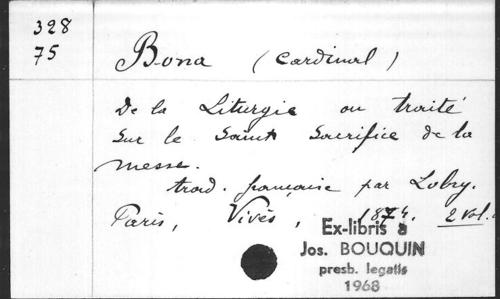 328
75
Bona (Cardinal)
De la Liturgie ou traité
sur le saint sacrifice de la
messe.
trad. française par Lobry.
Paris, Vivès, 1874. 2 vol.
Ex-libris a
Jos. BOUQUIN
presb. legatis
1968